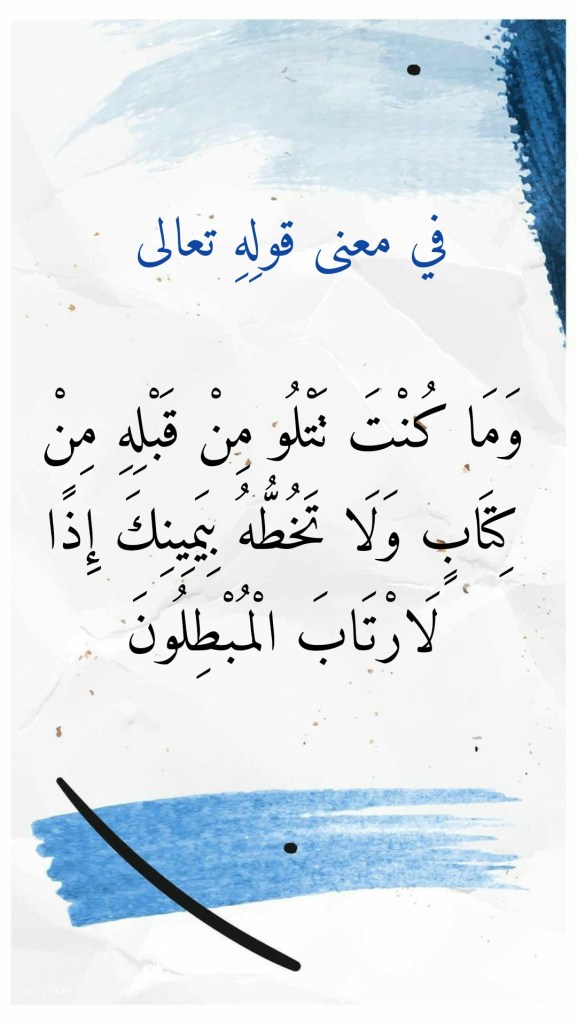 في معنى قولِهِ تعالى
وَمَا كُنْتَ تَتْلُو مِنْ قَبْلِهِ مِنْ
كِتَابٍ وَلَا تَخُطُّهُ بِيَمِينِكَ إِذًا
لَارْتَابَ الْمُبْطِلُونَ